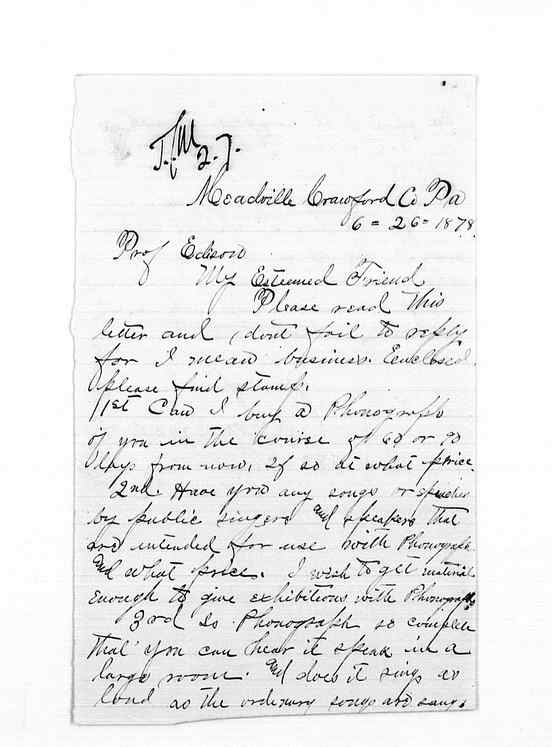 2.7.
Meadville Crawford Co Pa
6 = 26 = 1878.
Prof Edison
My Esteemed Friend
Please read this
letter and dont fail to reply
for I mean business. Eenclosed
please find stamp.
1st Can I buy a Phonograph
of you in the course of 60 or 90
days from now, If so at what price.
2nd. Have you any songs or speeches
by public singers and speakers that
are intended for use with Phonograph
and what price. I wish to get material
enough to give exhibitions with Phonograph
3rd Is Phonograph so complete
that you can hear it speak in a
large room. And does it sing as
loud as the ordinary songs are sung.